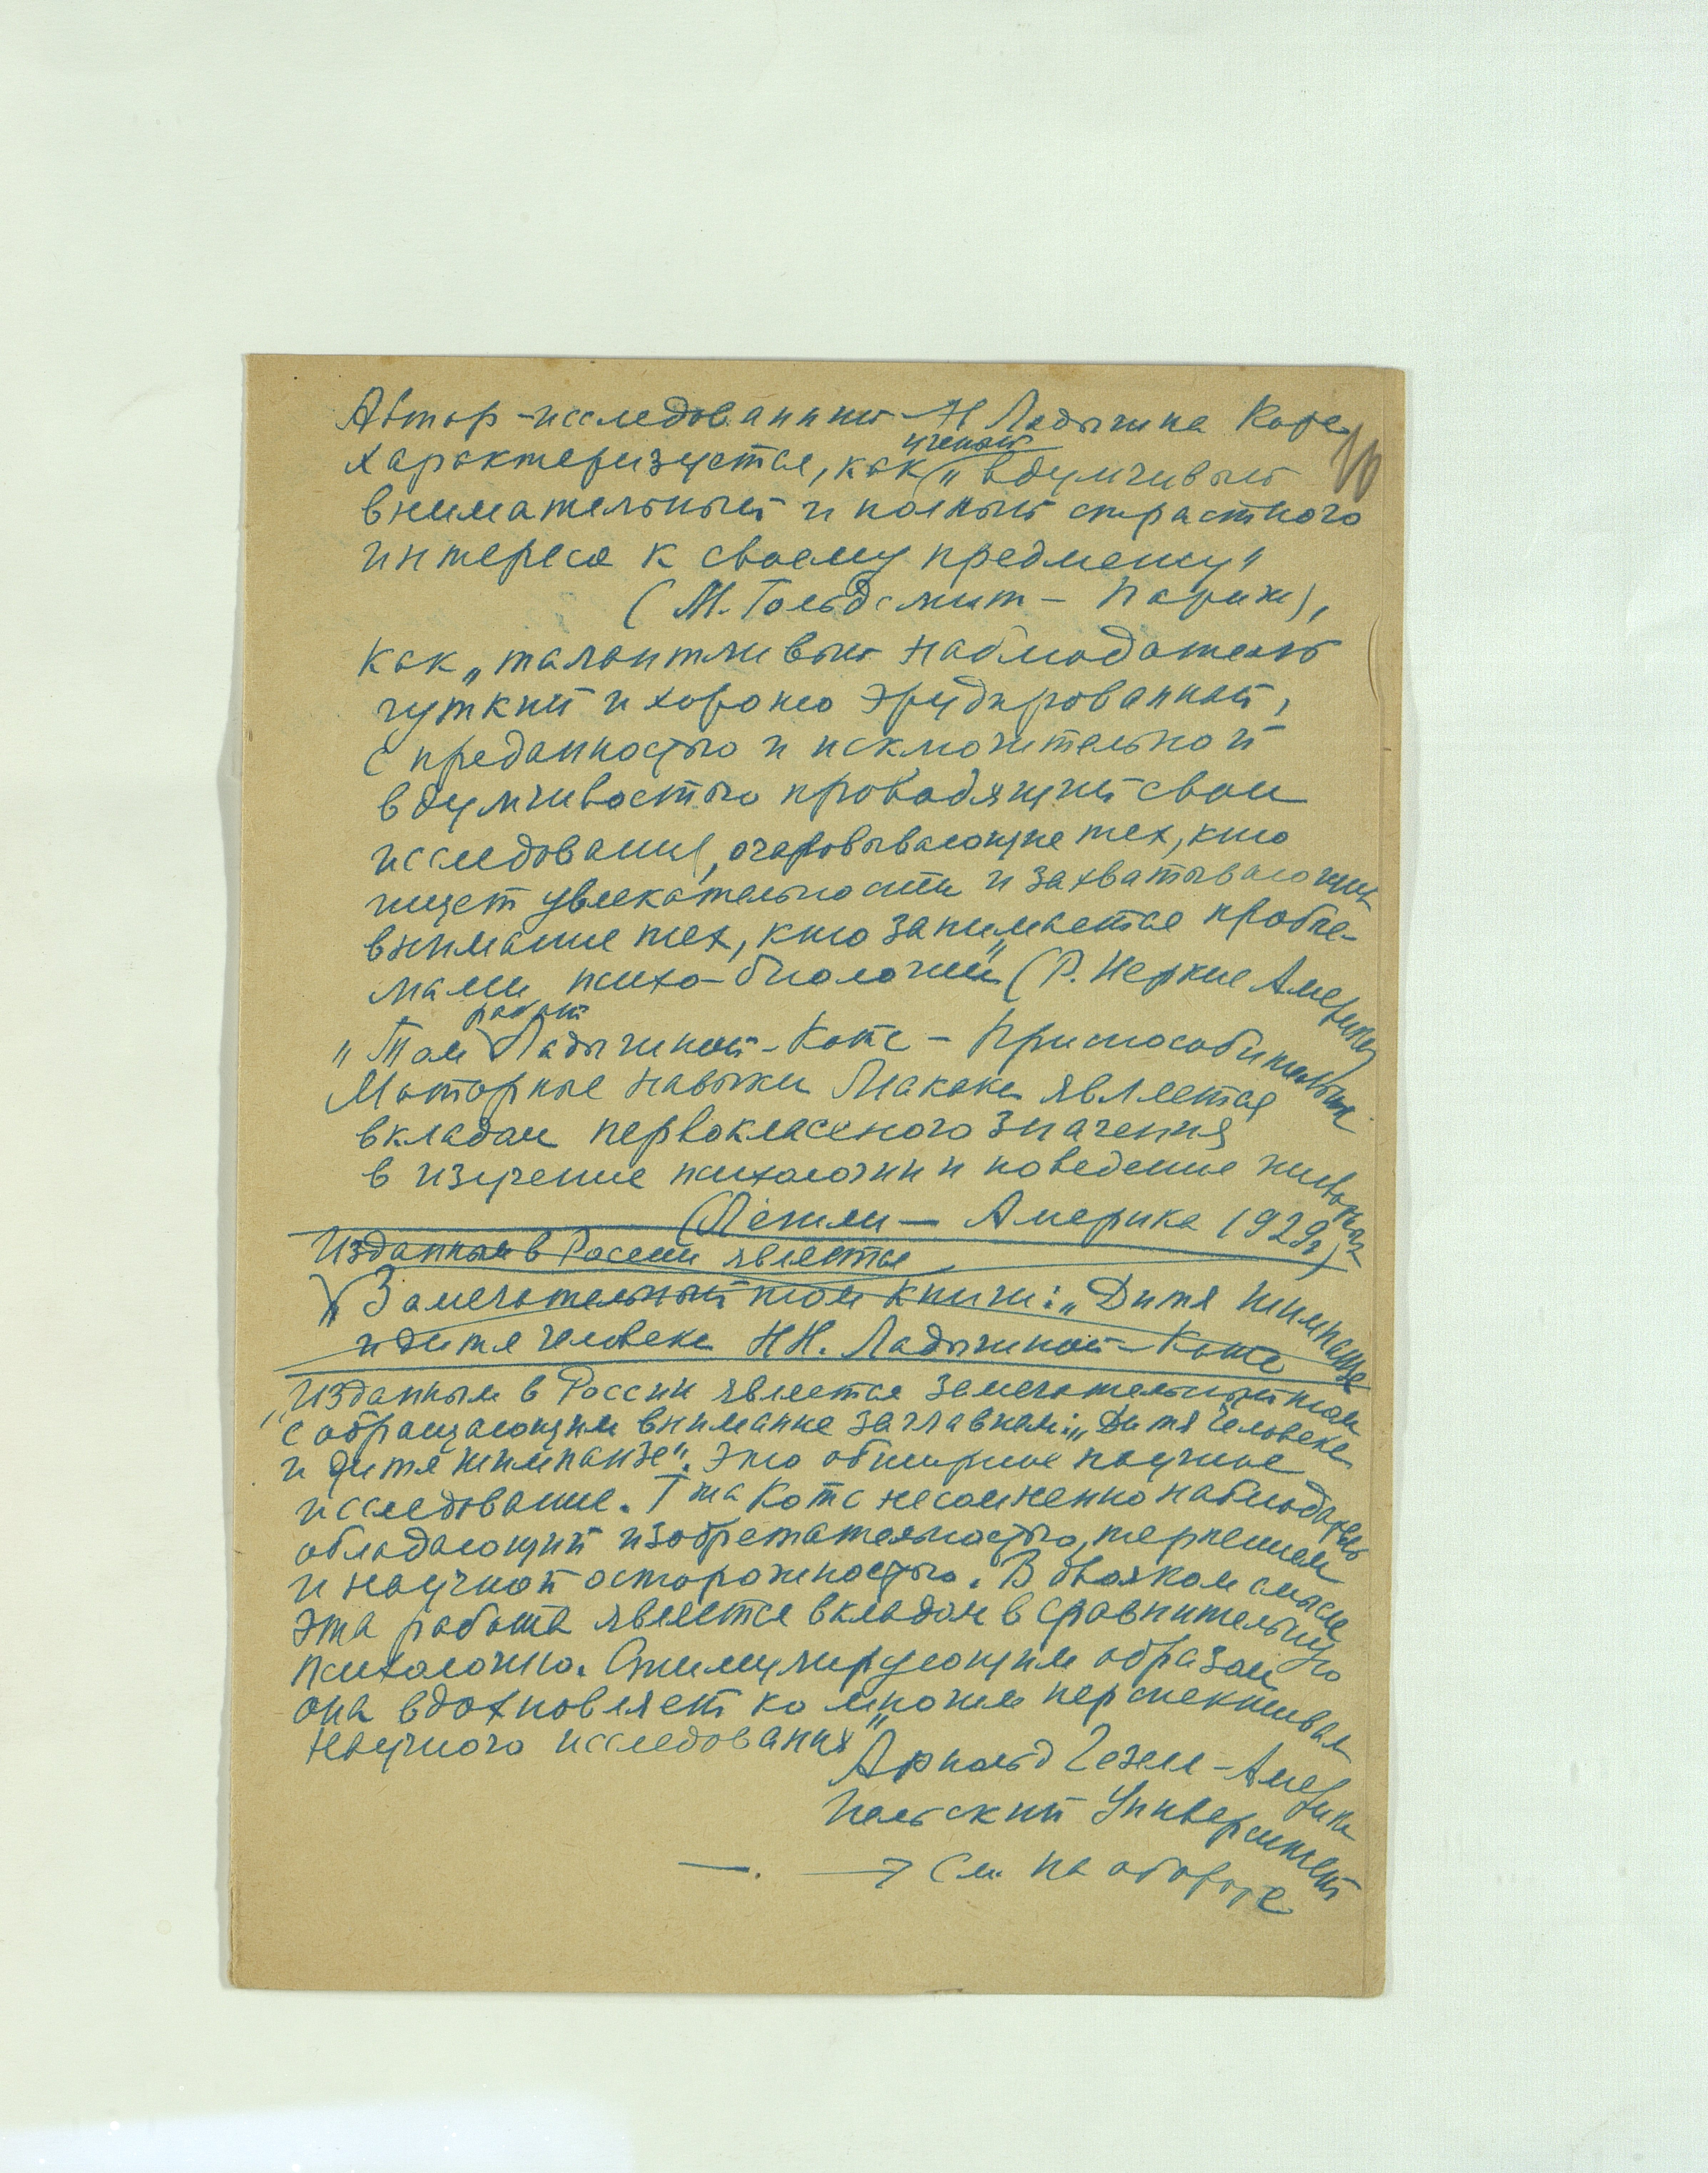 Автор-исследований Н Ладыгина Котс
10
характеризуется, как ученый „вдумчивый
внимательный и полный страстного
интереса к своему предмету"
(М. Гольдсмит – Париж),
как „талантливый наблюдатель
чуткий и хорошо эрудированный,
с преданностью и исключительной
вдумчивостью проводящий свои
исследования, очаровывающие тех, кто
ищет увлекательности и захватывающих
внимание тех, кто занимается пробле-
мами психо-биологии" (Р. Иеркс Америка)
„Том работ Ладыгиной-Котс – Приспособительные
Моторные навыки Макака является
вкладом первоклассного значения
в изучение психологии и поведение животных
(Лешли – Америка 1929г)
Изданным в России является
„Замечательный том книги: „Дитя шимпанзе
и дитя человека НН. Ладыгиной-Котс
„Изданным в России является замечательный том
с обращающим внимание заглавием: „Дитя человека
и дитя шимпанзе". Это обширное научное
исследование. Г-жа Котс несомненно наблюдатель
обладающий изобретательностью, терпением
и научной осторожностью. В двояком смысле
эта работа является вкладом в сравнительную
психологию. Стимулирующим образом
она вдохновляет ко многим перспективам
научного исследования"
Арнольд Гезелл – Америка
Иельский Университет
—. → См. на обороте